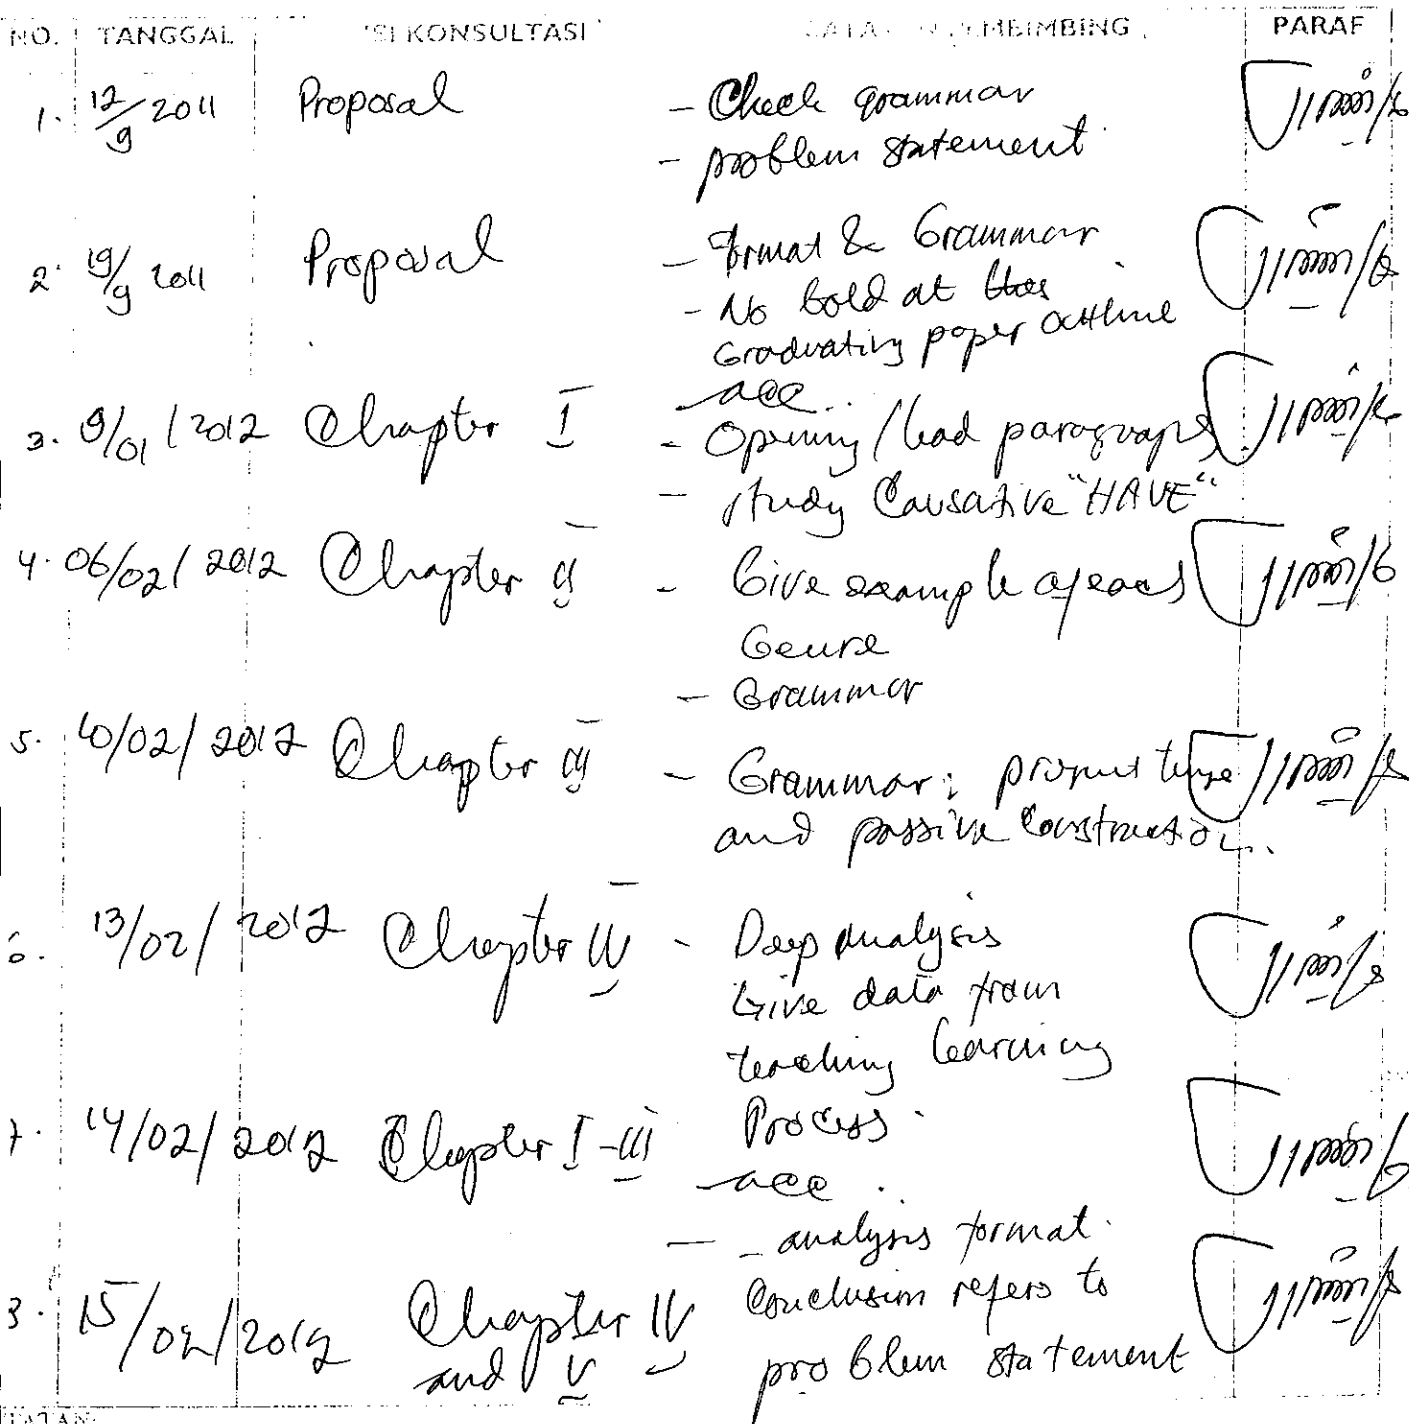 NO. TANGGAL ISI KONSULTASI PEMBIMBING PARAF
1. 12/9 2011 Proposal - Check grammar
- problem statement
2. 19/9 2011 Proposal - Format & Grammar
- No bold at
Graduating paper outline
- acc..
3. 9/01/2012 Chapter I - Opening/lead paragraph
- study Causative "HAVE"
4. 06/02/2012 Chapter II - Give example of each
Genre
- Grammar
5. 10/02/2012 Chapter III - Grammar: present tense
and passive construction..
6. 13/02/2012 Chapter IV - Deep analysis
Give data from
teaching learning
Process.
7. 14/02/2012 Chapter I-III - acc.
- analysis format.
8. 15/02/2012 Chapter IV and V Conclusion refers to
problem statement